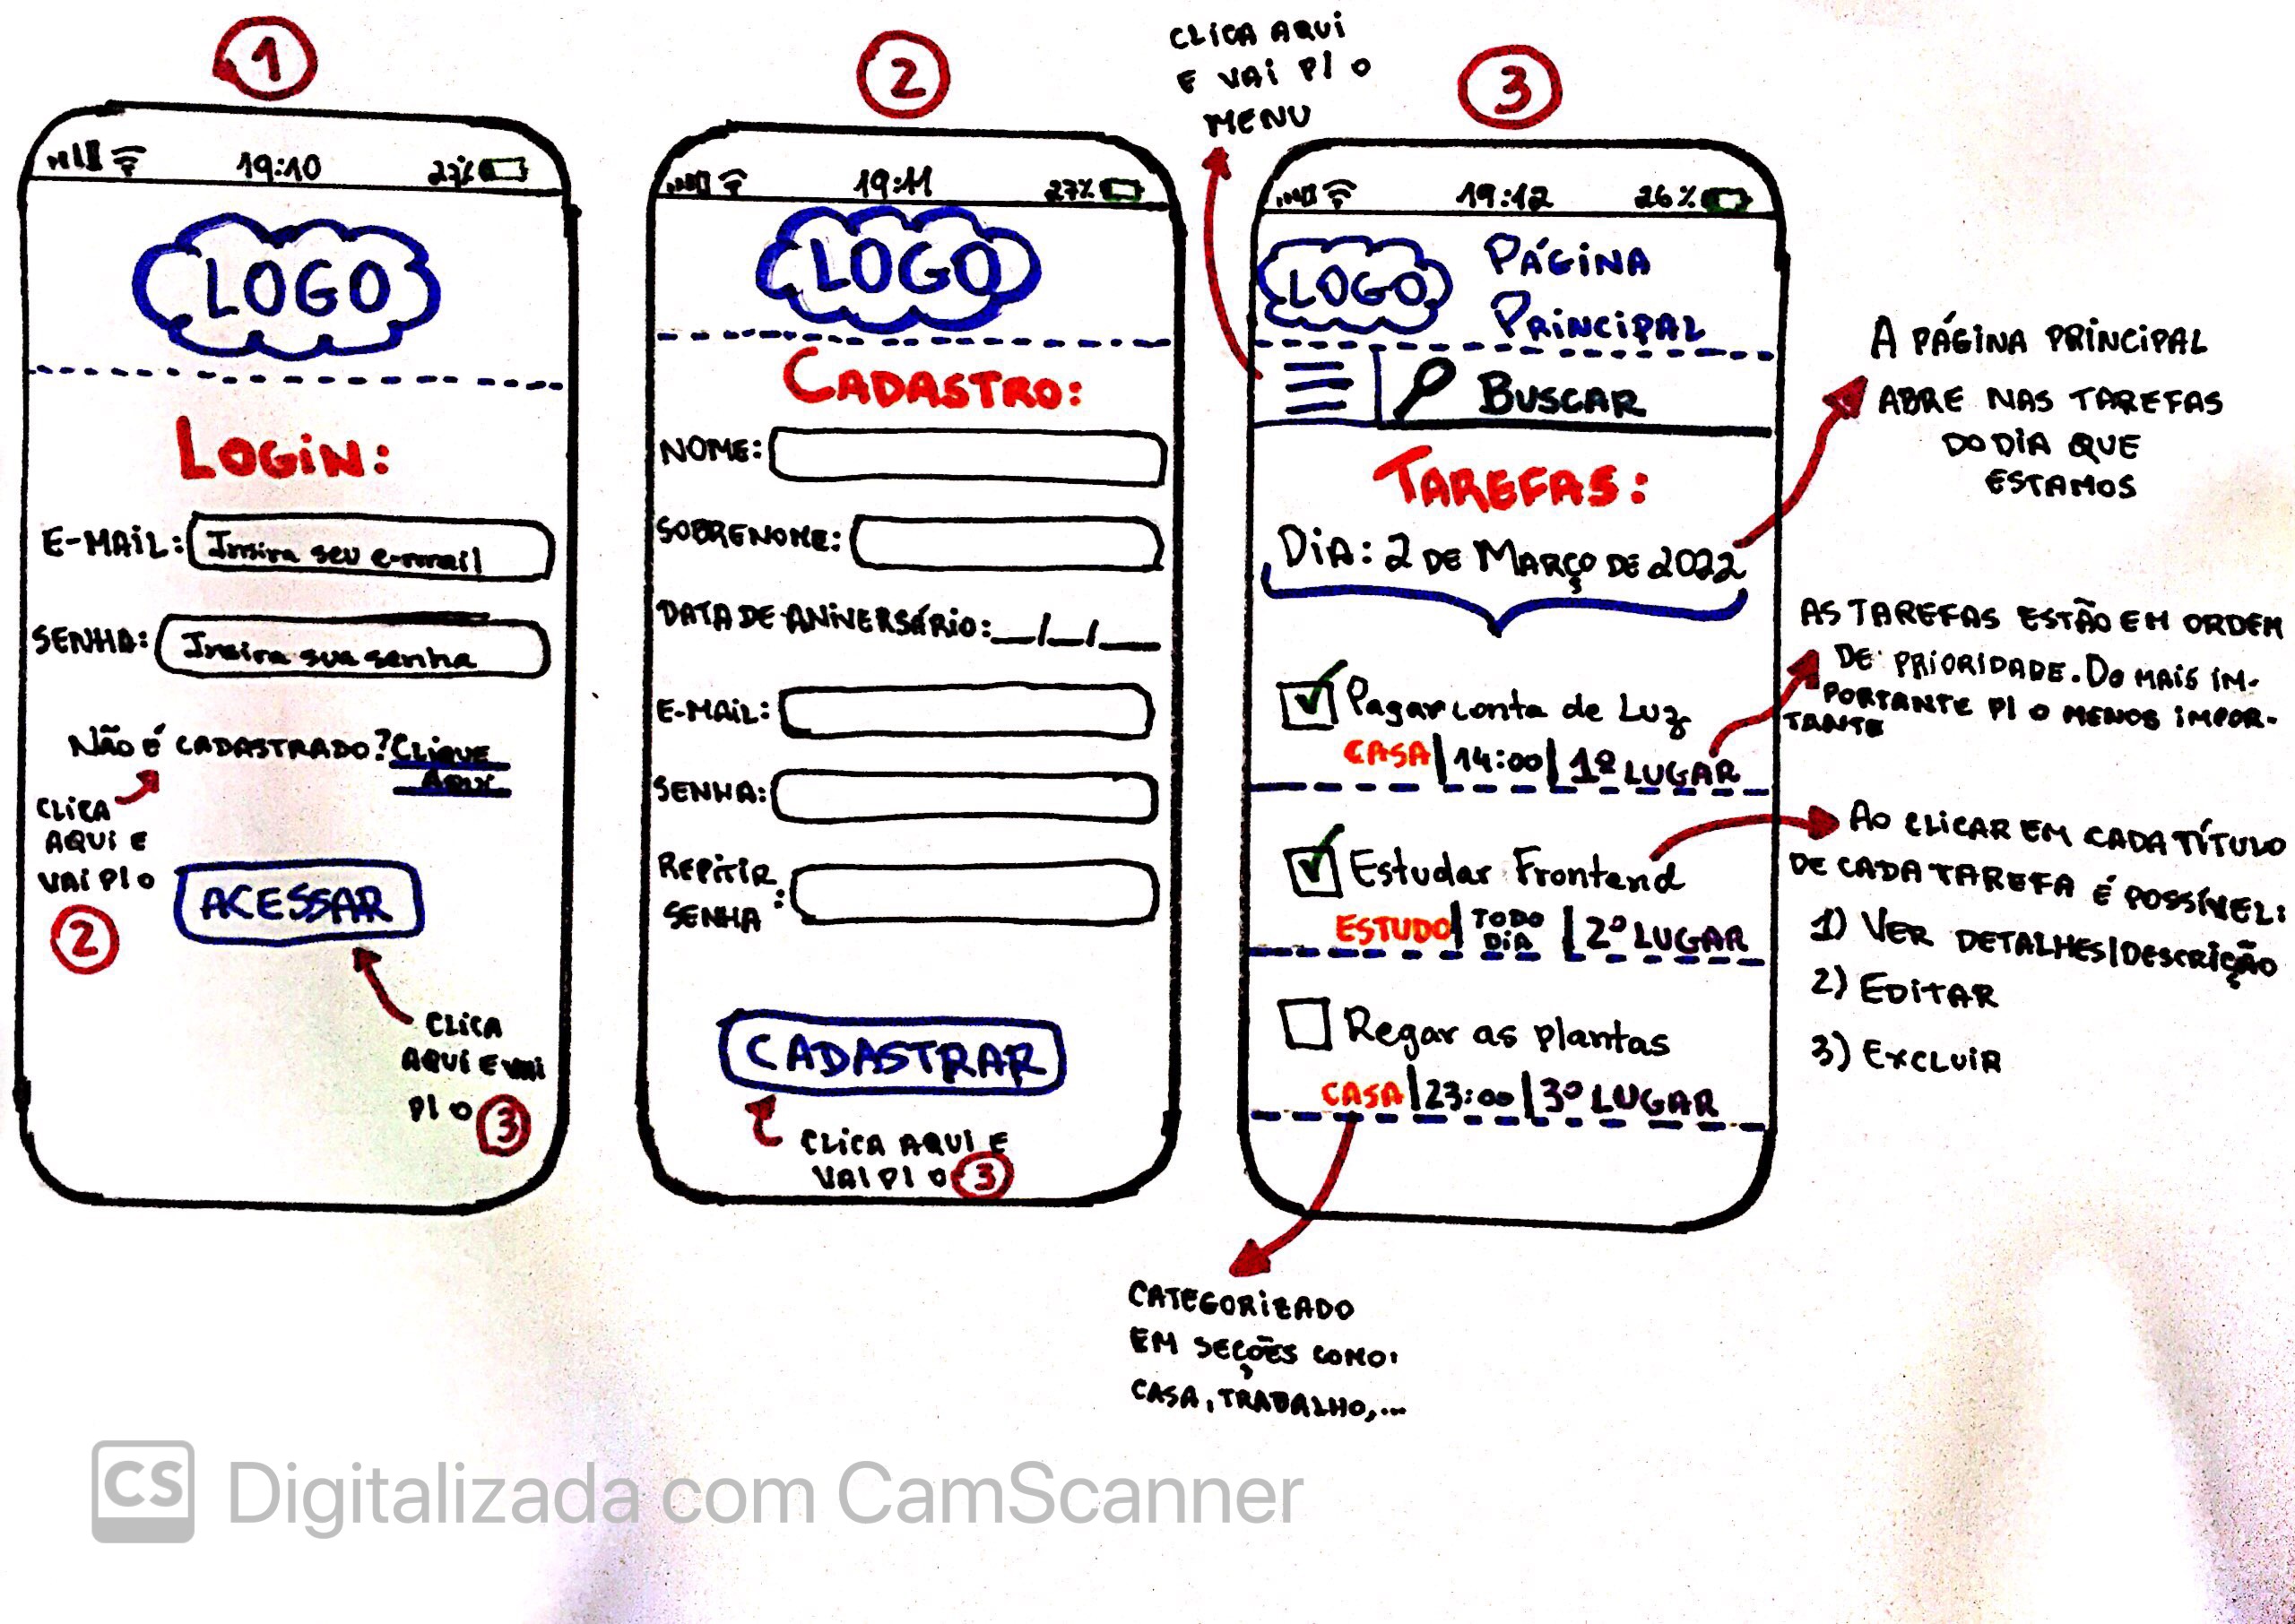 1
19:10
27%
LOGO
LOGIN:
E-MAIL: Insira seu e-mail
SENHA: Insira sua senha
NÃO É CADASTRADO? CLIQUE
AQUI
CLICA
AQUI E
VAI P/ O
2
ACESSAR
CLICA
AQUI E VAI
P/ O 3
2
19:11
27%
LOGO
CADASTRO:
NOME:
SOBRENOME:
DATA DE ANIVERSÁRIO: __/__/__
E-MAIL:
SENHA:
REPITIR
SENHA :
CADASTRAR
CLICA AQUI E
VAI P/ O 3
CLICA AQUI
E VAI P/ O
MENU
3
19:12
26%
LOGO
PÁGINA
PRINCIPAL
BUSCAR
TAREFAS:
DIA: 2 DE MARÇO DE 2022
Pagar conta de Luz
CASA | 14:00 | 1º LUGAR
Estudar Frontend
ESTUDO | TODO
DIA | 2º LUGAR
Regar as plantas
CASA | 23:00 | 3º LUGAR
A PÁGINA PRINCIPAL
ABRE NAS TAREFAS
DO DIA QUE
ESTAMOS
AS TAREFAS ESTÃO EM ORDEM
DE PRIORIDADE. DO MAIS IM-
PORTANTE P/ O MENOS IMPOR-
TANTE
AO CLICAR EM CADA TÍTULO
DE CADA TAREFA É POSSÍVEL:
1) VER DETALHES/DESCRIÇÃO
2) EDITAR
3) EXCLUIR
CATEGORIZADO
EM SEÇÕES COMO:
CASA, TRABALHO,...
CS Digitalizada com CamScanner